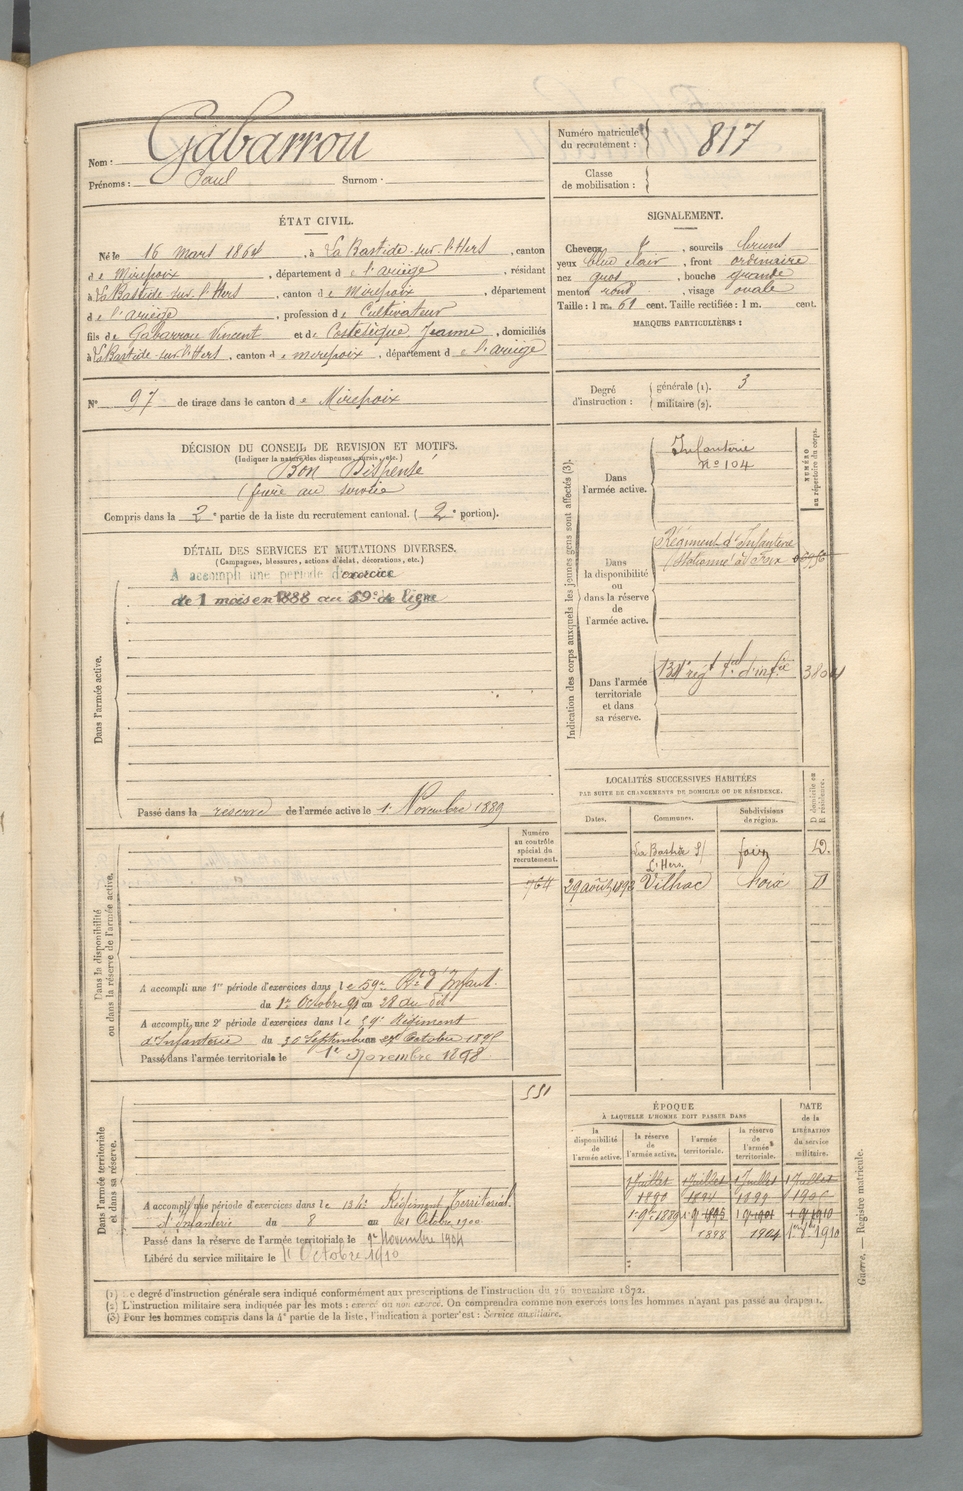 Nom : Gabarrou
Prénoms : Paul Surnom :
Numéro matricule du recrutement : 817
Classe de mobilisation :
ÉTAT CIVIL.
Né le 16 mars 1864, à La Bastide-sur-l'Hers, canton
de Mirepoix, département de l'ariège, résidant
à La Bastide-sur-l'Hers, canton de Mirepoix, département
de l'ariège, profession de Cultivateur
fils de Gabarrou Vincent et de Costesèque Jeanne, domiciliés
à La Bastide-sur-l'Hers, canton de mirepoix, département de l'ariège
N° 97 de tirage dans le canton de Mirepoix
SIGNALEMENT.
Cheveux, sourcils bruns
yeux bleu clair, front ordinaire
nez gros, bouche grande
menton rond, visage ovale
Taille : 1 m. 61 cent. Taille rectifiée : 1 m. cent.
MARQUES PARTICULIÈRES :
Degré d'instruction : générale (1). 3
militaire (2).
DÉCISION DU CONSEIL DE REVISION ET MOTIFS.
(Indiquer la nature des dispenses, sursis, etc.)
Bon Dispensé
(frère au service
Compris dans la 2e partie de la liste du recrutement cantonal. (2e portion).
DÉTAIL DES SERVICES ET MUTATIONS DIVERSES.
(Campagnes, blessures, actions d'éclat, décorations, etc.)
Dans l'armée active.
A accompli une période d'exercice
de 1 mois en 1888 au 59e de ligne
Passé dans la reserve de l'armée active le 1er Novembre 1889
Indication des corps auxquels les jeunes gens sont affectés (3).
NUMÉRO au répertoire du corps.
Dans l'armée active.
Infanterie
n° 104
Dans la disponibilité ou dans la réserve de l'armée active.
Régiment d'Infanterie
(stationné à Foix
Dans l'armée territoriale et dans sa réserve.
134e régt tal d'inf.ie
LOCALITÉS SUCCESSIVES HABITÉES
PAR SUITE DE CHANGEMENTS DE DOMICILE OU DE RÉSIDENCE.
Dates. Communes. Subdivisions de région. D domicile ou R résidence.
La Bastide S/ L'Hers. foix D.
29 août 1892 Vilhac foix D
Dans la disponibilité ou dans la réserve de l'armée active.
Numéro au contrôle spécial du recrutement.
764
A accompli une 1re période d'exercices dans le 59e Rt d'Infant.
du 1er Octobre 91 au 28 du dit
A accompli une 2e période d'exercices dans le 59e Régiment
d'Infanterie du 30 Septembre au 27 Octobre 1895
Passé dans l'armée territoriale le 1er Novembre 1898
Dans l'armée territoriale et dans sa réserve.
551
A accompli une période d'exercices dans le 134e Régiment Territorial
d'Infanterie du 8 au 21 Octobre 1900
Passé dans la réserve de l'armée territoriale le 1er Novembre 1904
Libéré du service militaire le 1er Octobre 1910
ÉPOQUE
À LAQUELLE L'HOMME DOIT PASSER DANS
DATE de la LIBÉRATION du service militaire.
la disponibilité de l'armée active. la réserve de l'armée active. l'armée territoriale. la réserve de l'armée territoriale.
1 Juillet 1 Juillet 1 Juillet 1 Juillet
1890 1894 1899 1905
1 9bre 1889 1 9 1895 1 9 1901 1 9 1910
1898 1904 1er 8bre 1910
(1) Le degré d'instruction générale sera indiqué conformément aux prescriptions de l'instruction du 26 novembre 1872.
(2) L'instruction militaire sera indiquée par les mots : exercé ou non exercé. On comprendra comme non exercés tous les hommes n'ayant pas passé au drapeau.
(3) Pour les hommes compris dans la 4e partie de la liste, l'indication à porter est : Service auxiliaire.
Guerre. — Registre matricule.